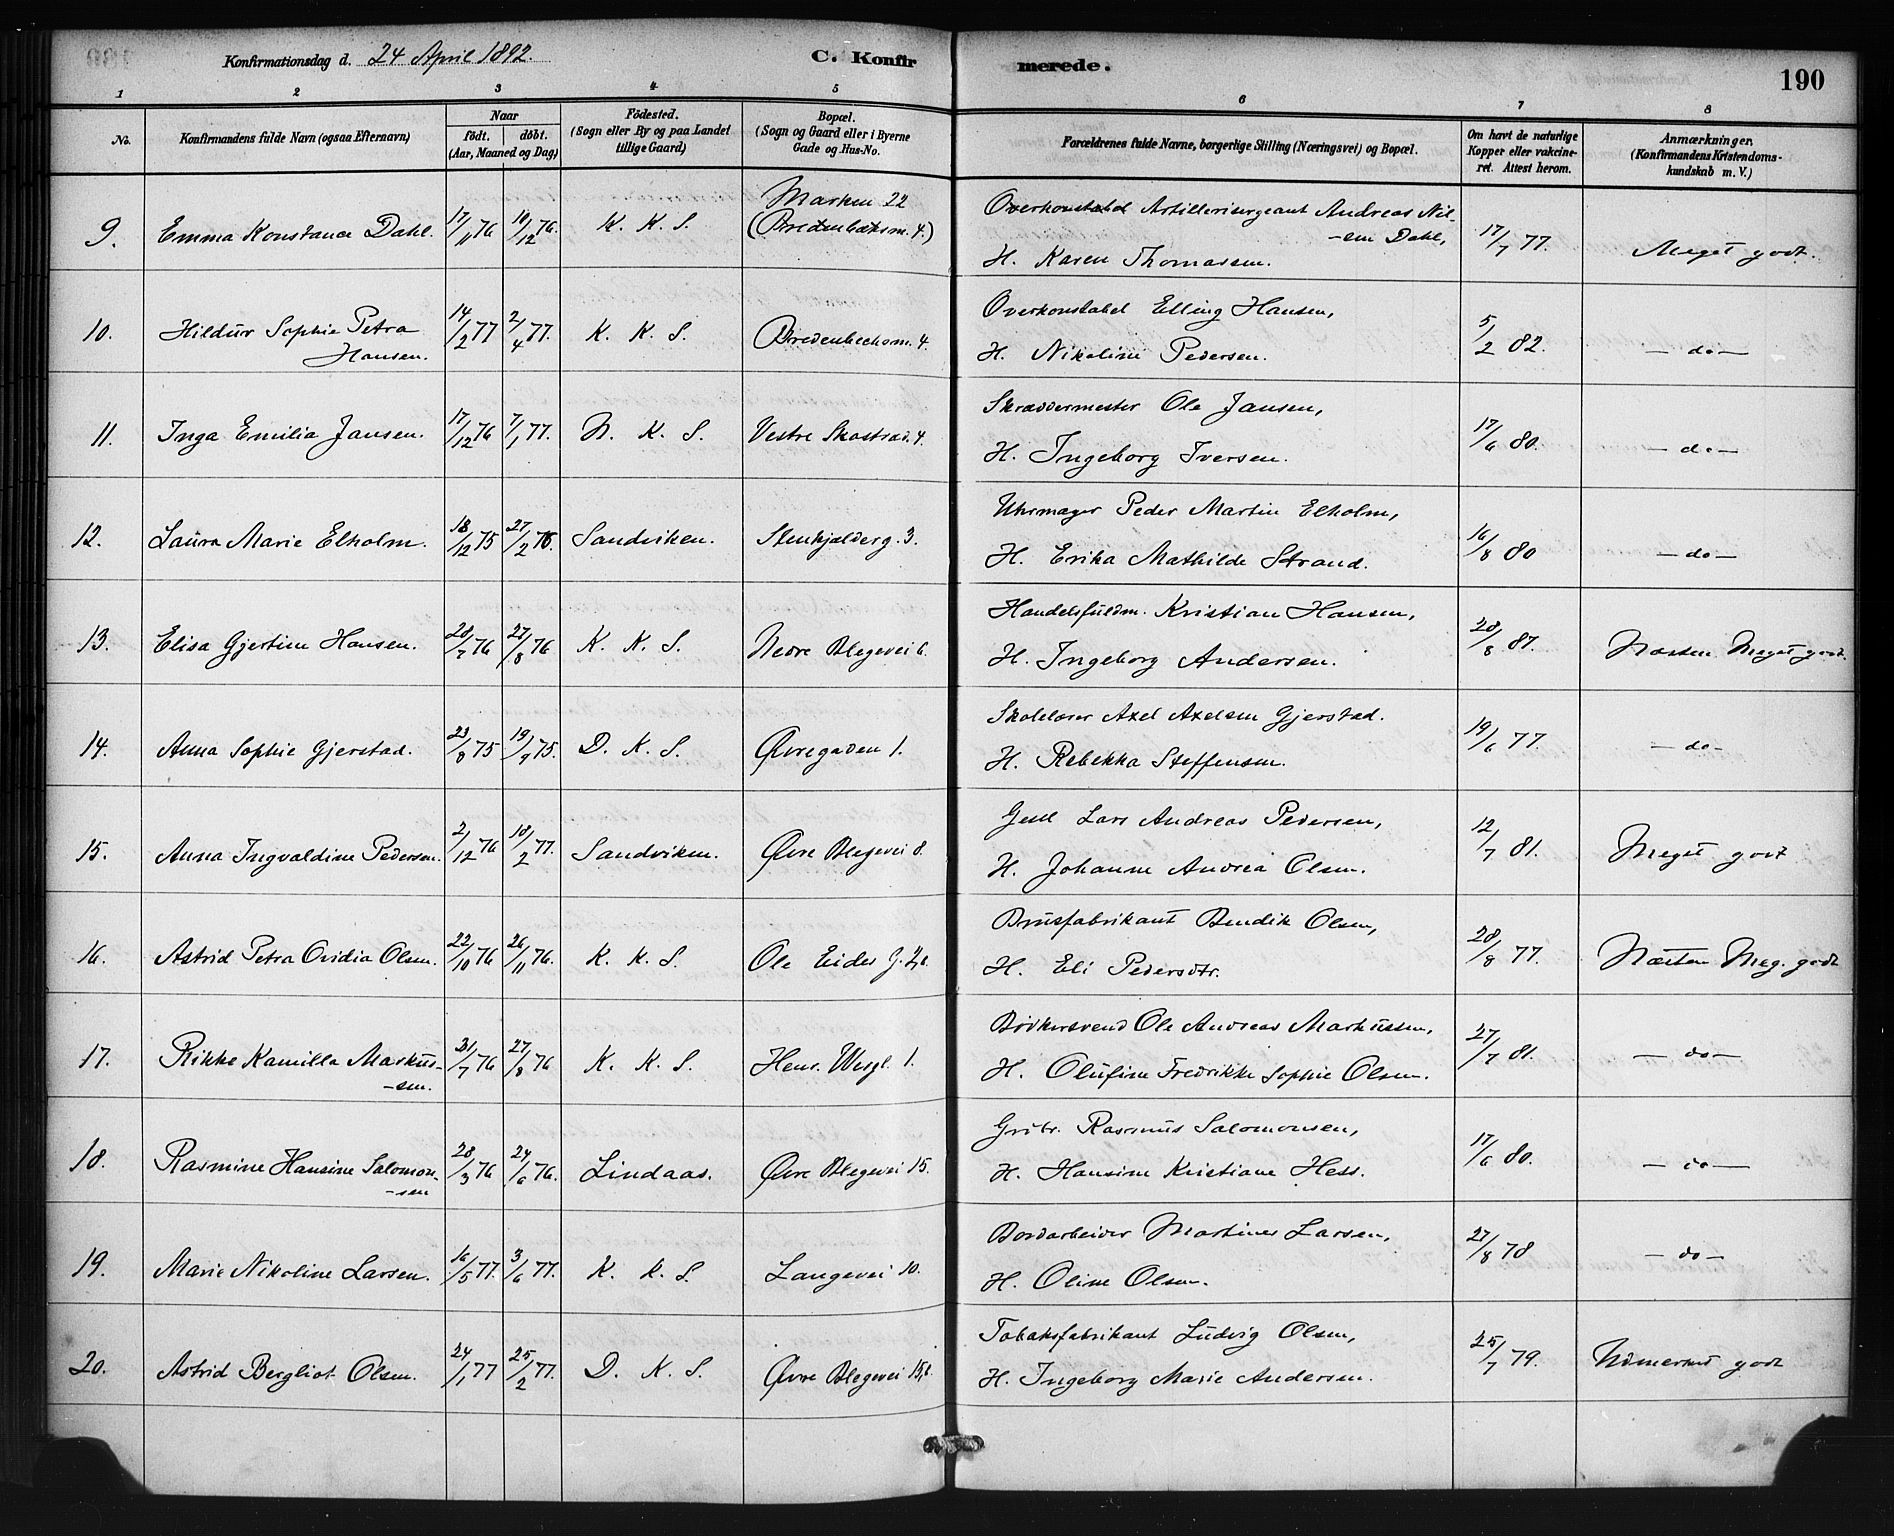 Konfirmationsdag d. 24 April 1892. C. Konfirmerede. 190
1 2 3 4 5 6 7 8
No. Konfirmandens fulde Navn (ogsaa Efternavn) Naar født. døbt. (Aar, Maaned og Dag) Fødested. (Sogn eller By og paa Landet tillige Gaard) Bopæl. (Sogn og Gaard eller i Byerne Gade og Hus-No. Forældrenes fulde Navne, borgerlige Stilling (Næringsvei) og Bopæl. Om havt de naturlige Kopper eller vakcineret. Attest herom. Anmærkninger. (Konfirmandens Kristendomskundskab m. V.)
9. Emma Konstance Dahl. 17/11 76 19/12 76. K. K. S. Marken 22 (Bredenbeksm. 4.) Overkonstabel Artillerisergeant Andreas Nilsen Dahl, H. Karen Thomassen. 17/7 77. Meget godt.
10. Hildur Sophie Petra Hansen. 14/2 77 2/4 77. K. K. S. Bredenbecksm. 4. Overkonstabel Elling Hansen, H. Nikoline Pedersen. 5/2 82. - do -
11. Inga Emilia Jansen. 17/12 76 7/1 77. N. K. S. Vestre Skostræd. 4. Skræddermester Ole Jansen, H. Ingeborg Iversen. 17/6 80. - do -
12. Laura Marie Elholm. 18/12 75 27/2 76. Sandviken. Stenkjælderg. 3. Uhrmager Peder Martin Elholm, H. Erika Mathilde Strand. 16/8 80 - do -
13. Elisa Gjertine Hansen. 28/7 76 27/8 76 K. K. S. Nedre Blegevei 6. Handelsfuldm. Kristian Hansen, H. Ingeborg Andersen. 28/8 87. Næsten Meget godt.
14. Anna Sophie Gjerstad. 23/8 75 19/9 75. D. K. S. Øvregaden 1. Skolelærer Axel Axelsen Gjerstad. H. Rebekka Steffensen. 19/6 77. - do -
15. Anna Ingvaldine Pedersen. 2/12 76 18/2 77. Sandviken. Øvre Blegevei 8. Gesel Lars Andreas Pedersen, H. Johanne Andrea Olsen. 12/7 81. Meget godt
16. Astrid Petra Ovidia Olsen. 22/10 76 26/11 76. K. K. S. Ole Eides G. Brusfabrikant Bendik Olsen, H. Eli Pedersdtr. 28/8 77. Næsten Meg. godt
17. Rikke Kamilla Markussen. 31/7 76 27/8 76 K. K. S. Henr. Wergl. 1. Bødkersvend Ole Andreas Markussen, H. Olufine Fredrikke Sophie Olsen. 27/7 81. - do -
18. Rasmine Hansine Salomonsen 28/3 76 24/6 76. Lindaas. Øvre Blegevei 15. Grdbr. Rasmus Salomonsen, H. Hansine Kristiane Hess. 17/6 80. - do -
19. Marie Nikoline Larsen. 16/5 77. 3/6 77. K. K. S. Langevei 10. Bordarbeider Martines Larsen, H. Oline Olsen. 27/8 78 - do -
20. Astrid Bergliot Olsen. 24/1 77 25/2 77. D. K. S. Øvre Blegevei 15, b. Tobaksfabrikant Ludvig Olsen, H. Ingeborg Marie Andersen. 25/7 79. Udmerket godt